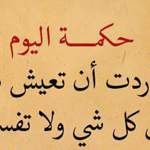 حكمــة اليوم
ردت أن تعيش
كل شي ولا